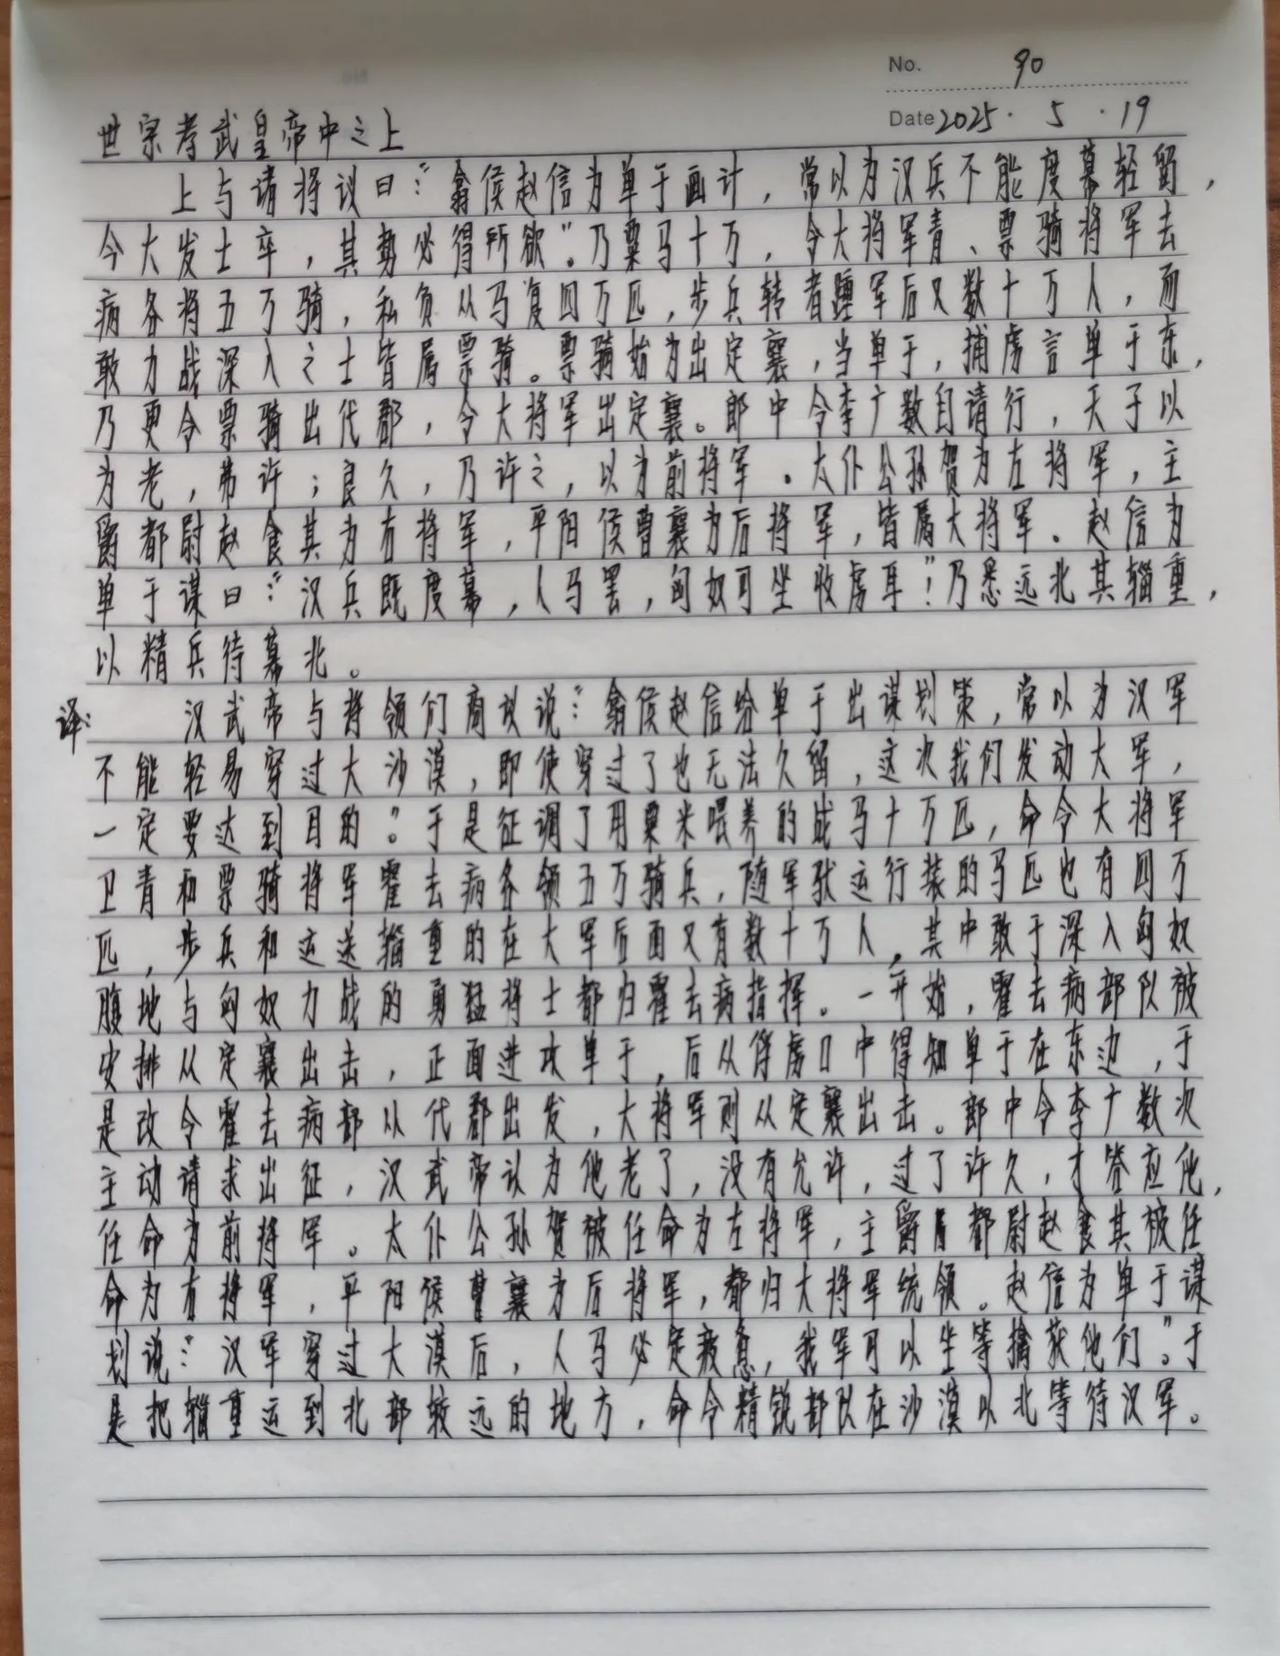 No. 90
Date 2025. 5. 19
世宗孝武皇帝中之上
上与诸将议曰："翕侯赵信为单于画计，常以为汉兵不能度幕轻留，
今大发士卒，其势必得所欲。"乃粟马十万，令大将军青、票骑将军去
病各将五万骑，私负从马复四万匹，步兵转者踵军后又数十万人，而
敢力战深入之士皆属票骑。票骑始为出定襄，当单于，捕虏言单于东，
乃更令票骑出代郡，令大将军出定襄。郎中令李广数自请行，天子以
为老，弗许；良久，乃许之，以为前将军。太仆公孙贺为左将军，主
爵都尉赵食其为右将军，平阳侯曹襄为后将军，皆属大将军。赵信为
单于谋曰："汉兵既度幕，人马罢，匈奴可坐收虏耳！"乃悉远北其辎重，
以精兵待幕北。
译：汉武帝与将领们商议说："翕侯赵信给单于出谋划策，常以为汉军
不能轻易穿过大沙漠，即使穿过了也无法久留，这次我们发动大军，
一定要达到目的。"于是征调了用粟米喂养的战马十万匹，命令大将军
卫青和票骑将军霍去病各领五万骑兵，随军驮运行装的马匹也有四万
匹，步兵和运送辎重的在大军后面又有数十万人，其中敢于深入匈奴
腹地与匈奴力战的勇猛将士都归霍去病指挥。一开始，霍去病部队被
安排从定襄出击，正面进攻单于，后从俘虏口中得知单于在东边，于
是改令霍去病部以代郡出发，大将军则从定襄出击。郎中令李广数次
主动请求出征，汉武帝认为他老了，没有允许，过了许久，才答应他，
任命为前将军。太仆公孙贺被任命为左将军，主爵都尉赵食其被任
命为右将军，平阳侯曹襄为后将军，都归大将军统领。赵信为单于谋
划说："汉军穿过大漠后，人马必定疲惫，我军可以坐等擒获他们。"于
是把辎重运到北部较远的地方，命令精锐部队在沙漠以北等待汉军。